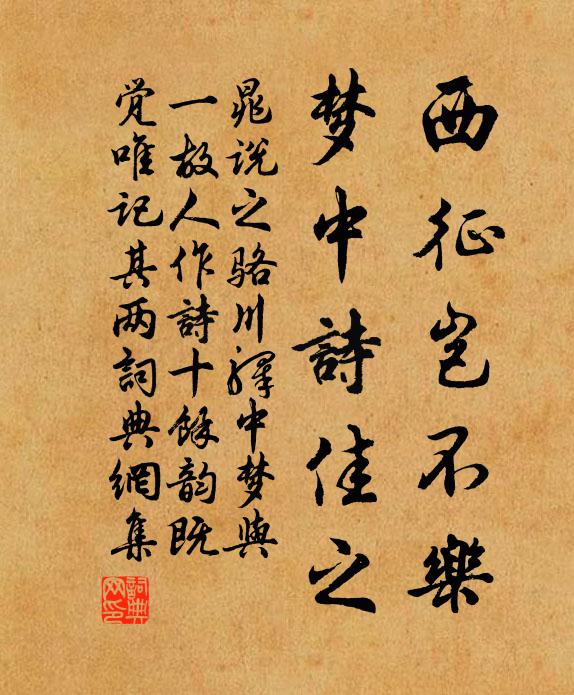 西征岂不樂
梦中詩佳之
晁说之骆川驛中梦與
一故人作詩十餘韵既
觉唯记其两詞典網集
詞典网印